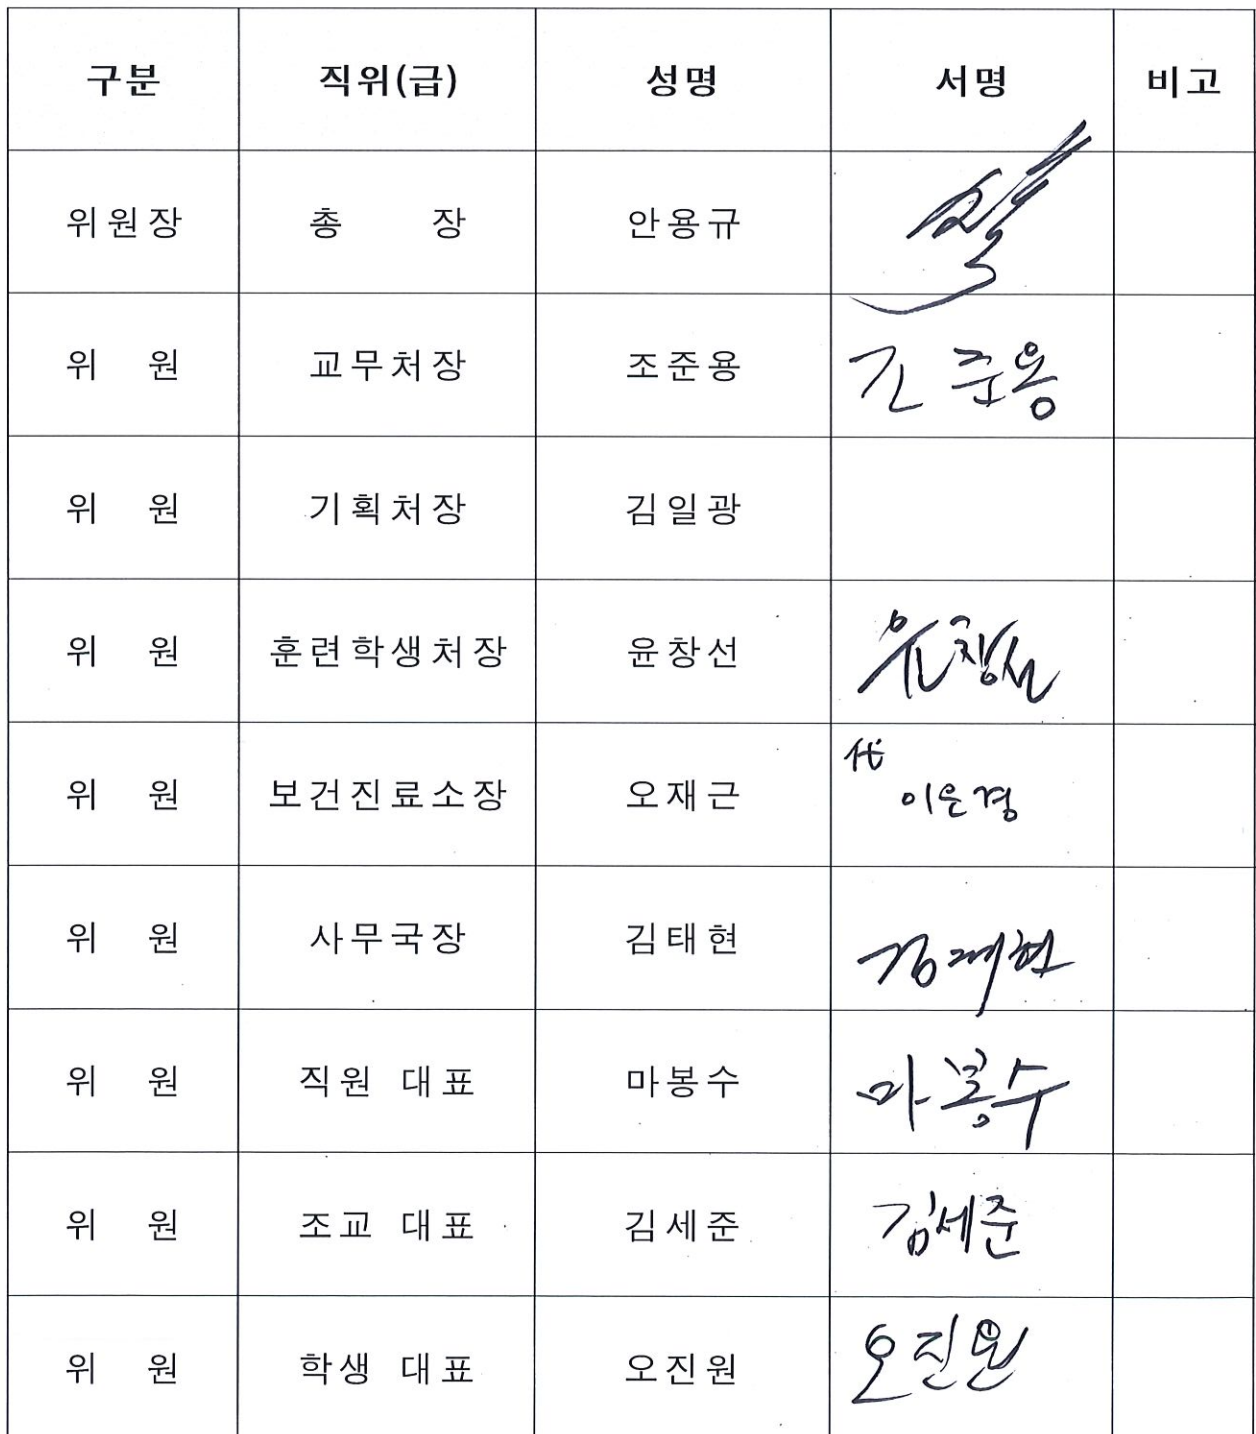 구분 직위(급) 성명 서명 비고
위원장 총 장 안용규
위 원 교무처장 조준용 조준용
위 원 기획처장 김일광
위 원 훈련학생처장 윤창선 윤창선
위 원 보건진료소장 오재근 代 이은경
위 원 사무국장 김태현 김태현
위 원 직원 대표 마봉수 마봉수
위 원 조교 대표 김세준 김세준
위 원 학생 대표 오진원 오진원